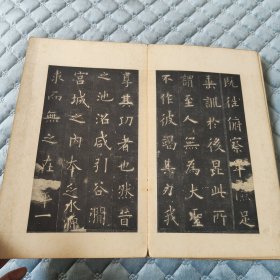 既往俯察卑儉足
垂訓於後昆此所
謂至人無為大聖
不作彼竭其力我
享其功者也然昔
之池沼咸引谷澗
宮城之內本乏水源
求而無之在乎一